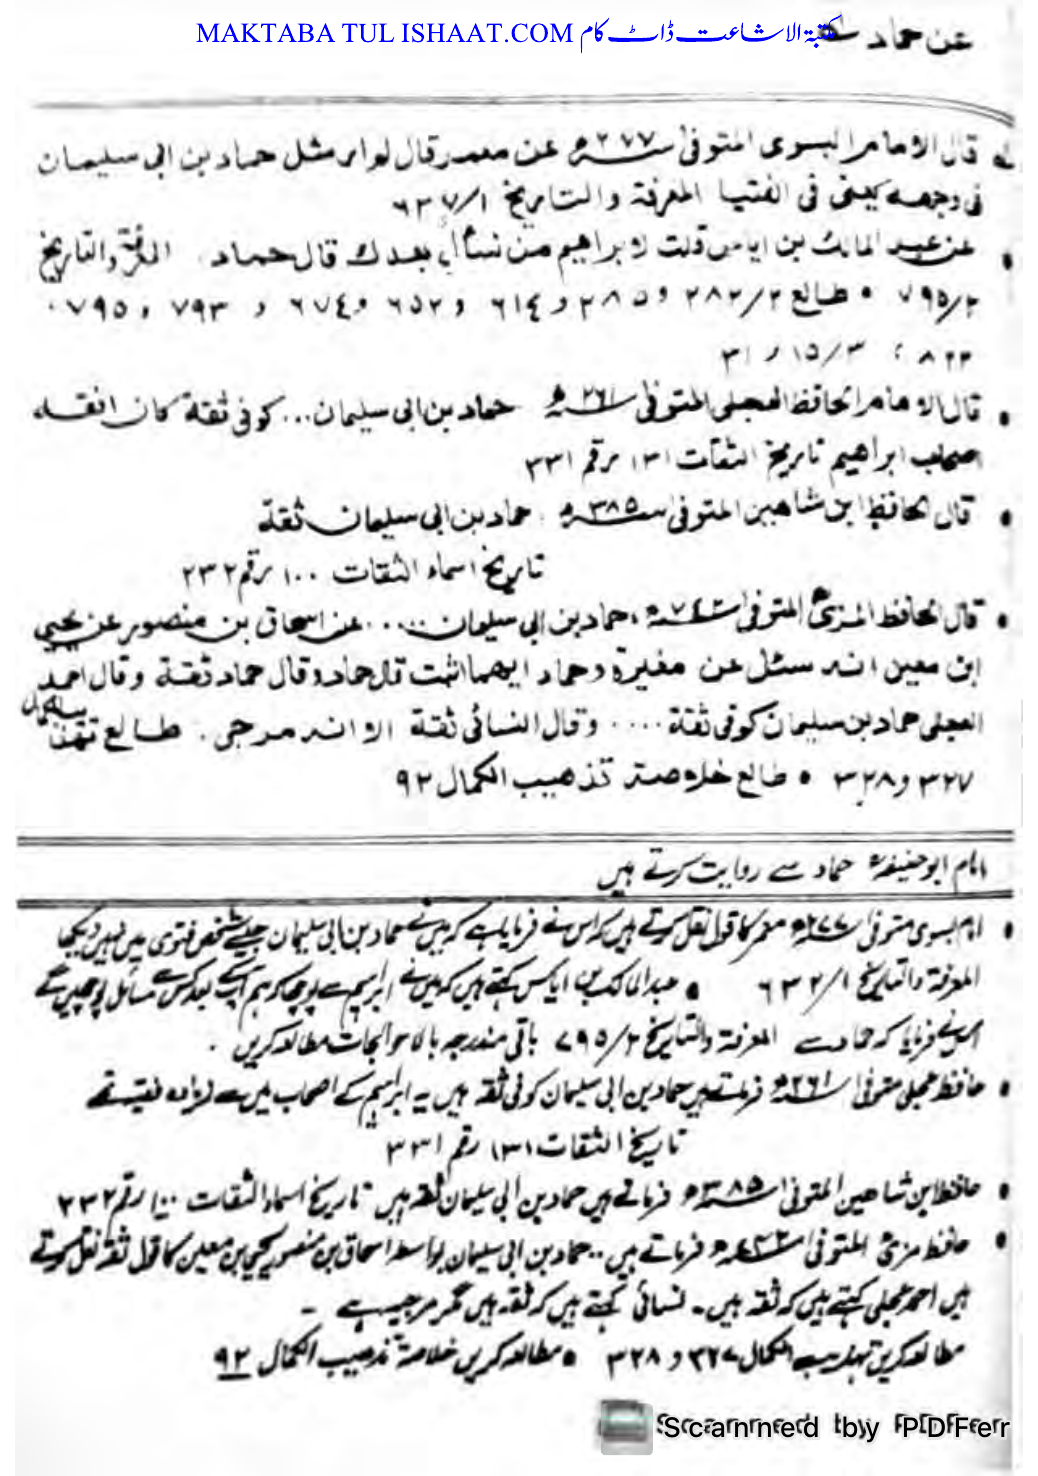 MAKTABA TUL ISHAAT.COM مکتبۃ الاشاعت ڈاٹ کام
عن حماد
قال الامام البسوی المتوفیٰ ۲۷۷ھ عن معمر قال لم ار مثل حماد بن ابی سلیمان
فی الفتیا المعرفۃ والتاریخ
عن عبد الملک بن ایاس قلت لابراهیم من نسأل بعدک قال حماد . المعرفۃ والتاریخ
۷۹۵/۲ • طالع ۲۸۲/۲ و ۲۸۵ و ۶۱٤ و ۶۵۲ و ۶۷٤ و ۷۹۳ و ۷۹۵
۱۵/۳
قال الامام الحافظ العجلی المتوفیٰ ۲۶۱ھ حماد بن ابی سلیمان... کوفی ثقة کان افقه
اصحاب ابراهیم تاریخ الثقات ۱۳۱ رقم ۳۳۱
قال الحافظ ابن شاهین المتوفیٰ ۳۸۵ھ حماد بن ابی سلیمان ثقة
تاریخ اسماء الثقات ۱۰۰ رقم ۲۳۲
قال الحافظ المزیؒ المتوفیٰ ۷٤۲ھ، حماد بن ابی سلیمان .... عن اسحاق بن منصور عن یحییٰ
ابن معین انه سئل عن مغیرة وحماد ایهما اثبت قال حماد وقال حماد ثقة وقال احمد
العجلی حماد بن سلیمان کوفی ثقة .... وقال النسائی ثقة الا انه مرجی . طالع تهذیب الکمال
۳۲۷ و ۳۲۸ • طالع خلاصة تذهیب الکمال ۹۲
امام ابو حنیفہؒ حماد سے روایت کرتے ہیں
امام بسوی متوفیٰ ۲۷۷ھ معمر کا قول نقل کرتے ہیں کہ اس نے فرمایا ہے کہ میں نے حماد بن ابی سلیمان جیسے شخص فتویٰ میں نہیں دیکھا
المعرفۃ والتاریخ ۶۳۲/۱ • عبدالمالک بن ایاس کہتے ہیں کہ میں نے ابراہیم سے پوچھا کہ ہم آپکے بعد کس سے مسائل پوچھیں گے
فرمایا کہ حماد سے المعرفۃ والتاریخ ۷۹۵/۲ باقی مندرجہ بالا حوالجات مطالعہ کریں .
حافظ عجلی متوفیٰ ۲۶۱ھ فرماتے ہیں حماد بن ابی سلیمان کوفی ثقہ ہیں یہ ابراہیم کے اصحاب میں سے زیادہ فقیہ تھے
تاریخ الثقات ۱۳۱ رقم ۳۳۱
حافظ ابن شاہین المتوفیٰ ۳۸۵ھ فرماتے ہیں حماد بن ابی سلیمان ثقہ ہیں تاریخ اسماء الثقات ۱۰۰ رقم ۲۳۲
حافظ مزیؒ المتوفیٰ ۷٤۲ھ فرماتے ہیں .. حماد بن ابی سلیمان بواسطہ اسحاق بن منصور یحییٰ بن معین کا قول ثقہ نقل کرتے
ہیں احمد عجلی کہتے ہیں کہ ثقہ ہیں۔ نسائی کہتے ہیں کہ ثقہ ہیں مگر مرجیہ ہے ۔
مطالعہ کریں تہذیب الکمال ۳۲۷ و ۳۲۸ • مطالعہ کریں خلاصۃ تذہیب الکمال ۹۲
Scanned by PDFer